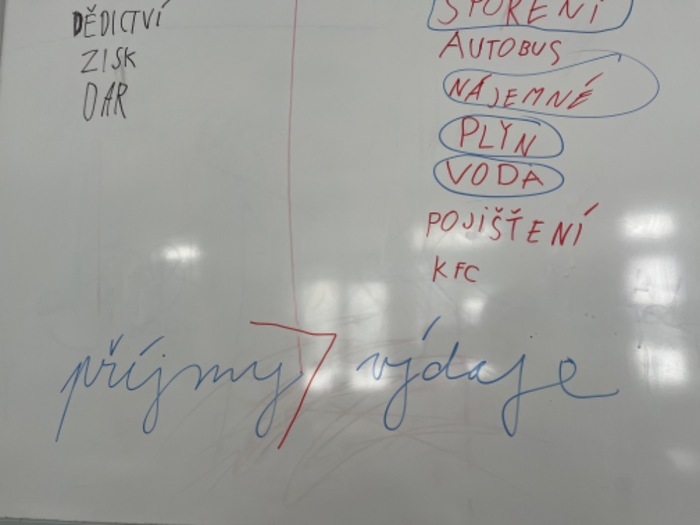 DĚDICTVÍ
ZISK
DAR
SPOŘENÍ
AUTOBUS
NÁJEMNÉ
PLYN
VODA
POJIŠŤENÍ
KFC
příjmy > výdaje